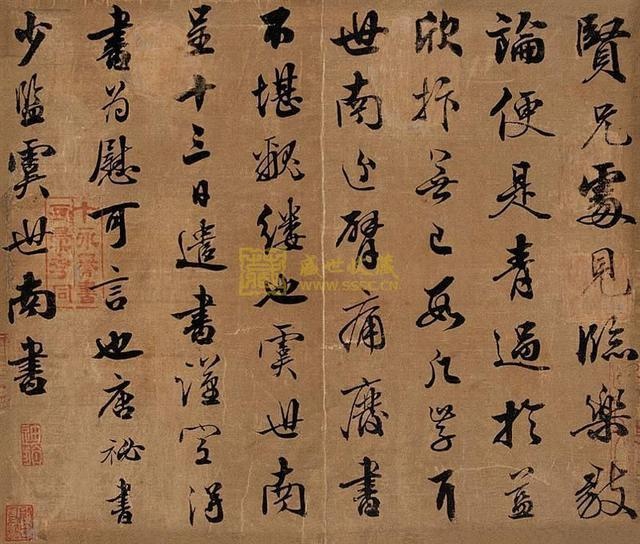 賢兄處見臨樂毅
論便是青過於藍
欣抃無已學耳
世南近臂痛廢書
不堪覼縷也虞世南
呈十三日遣書謹空得
書為慰可言也唐祕書
少監虞世南書
盛世收藏
WWW.SSSC.CN